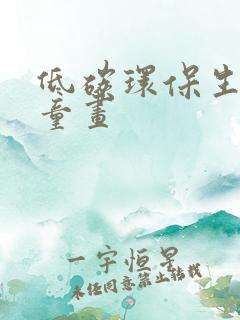 低碳環保生
童畫
一宇恒星
未经同意禁止转载